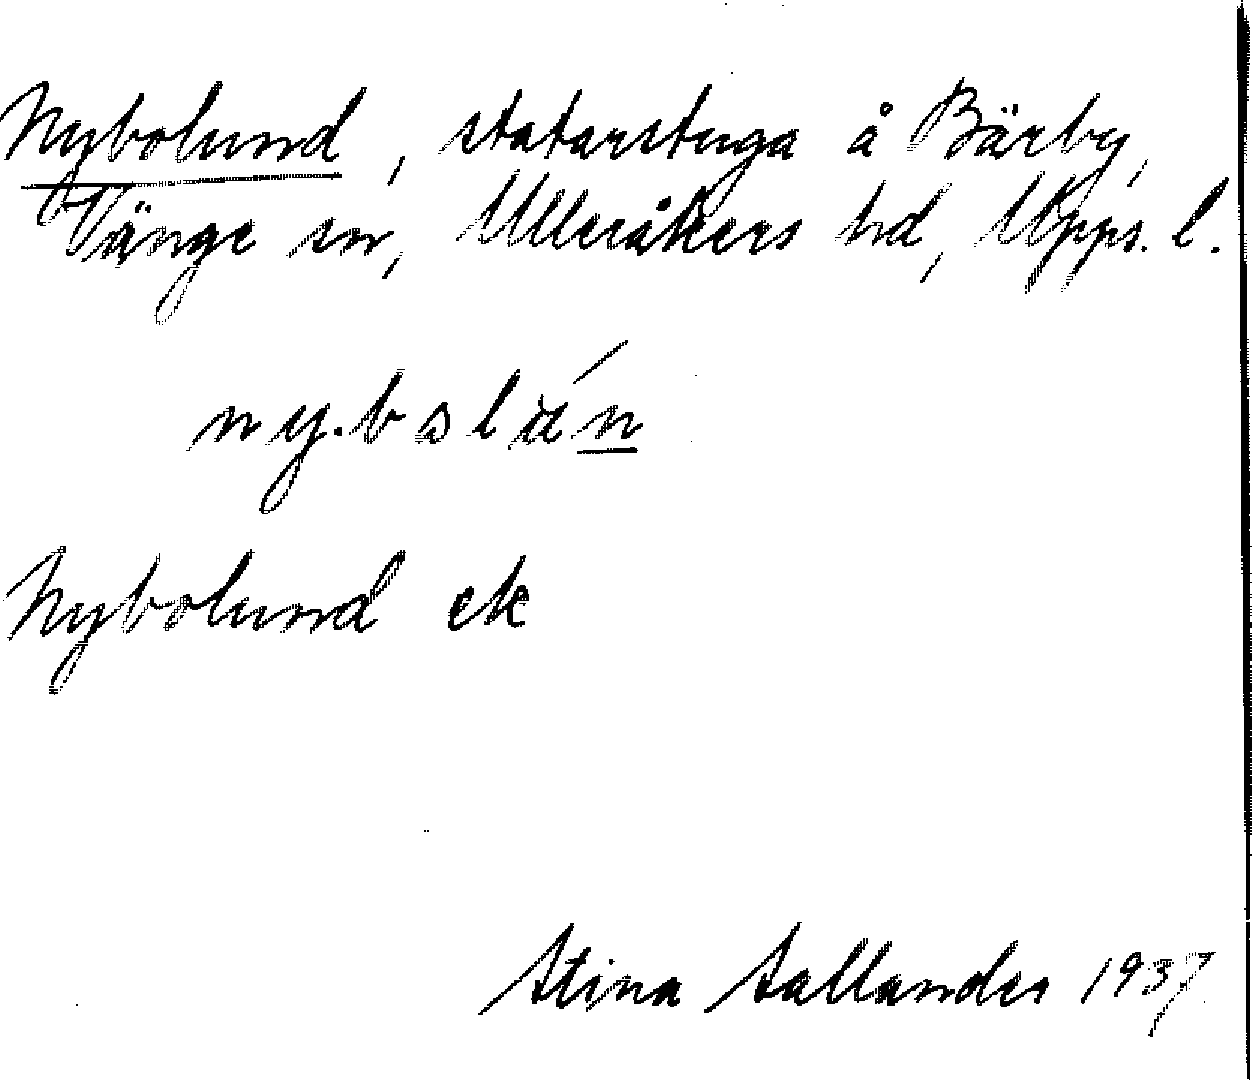 Nybolund, statarstuga å Bärby,
Vänge sn, Ulleråkers hd, Upps. l.
Nybolund ek
Stina Sallander 1937